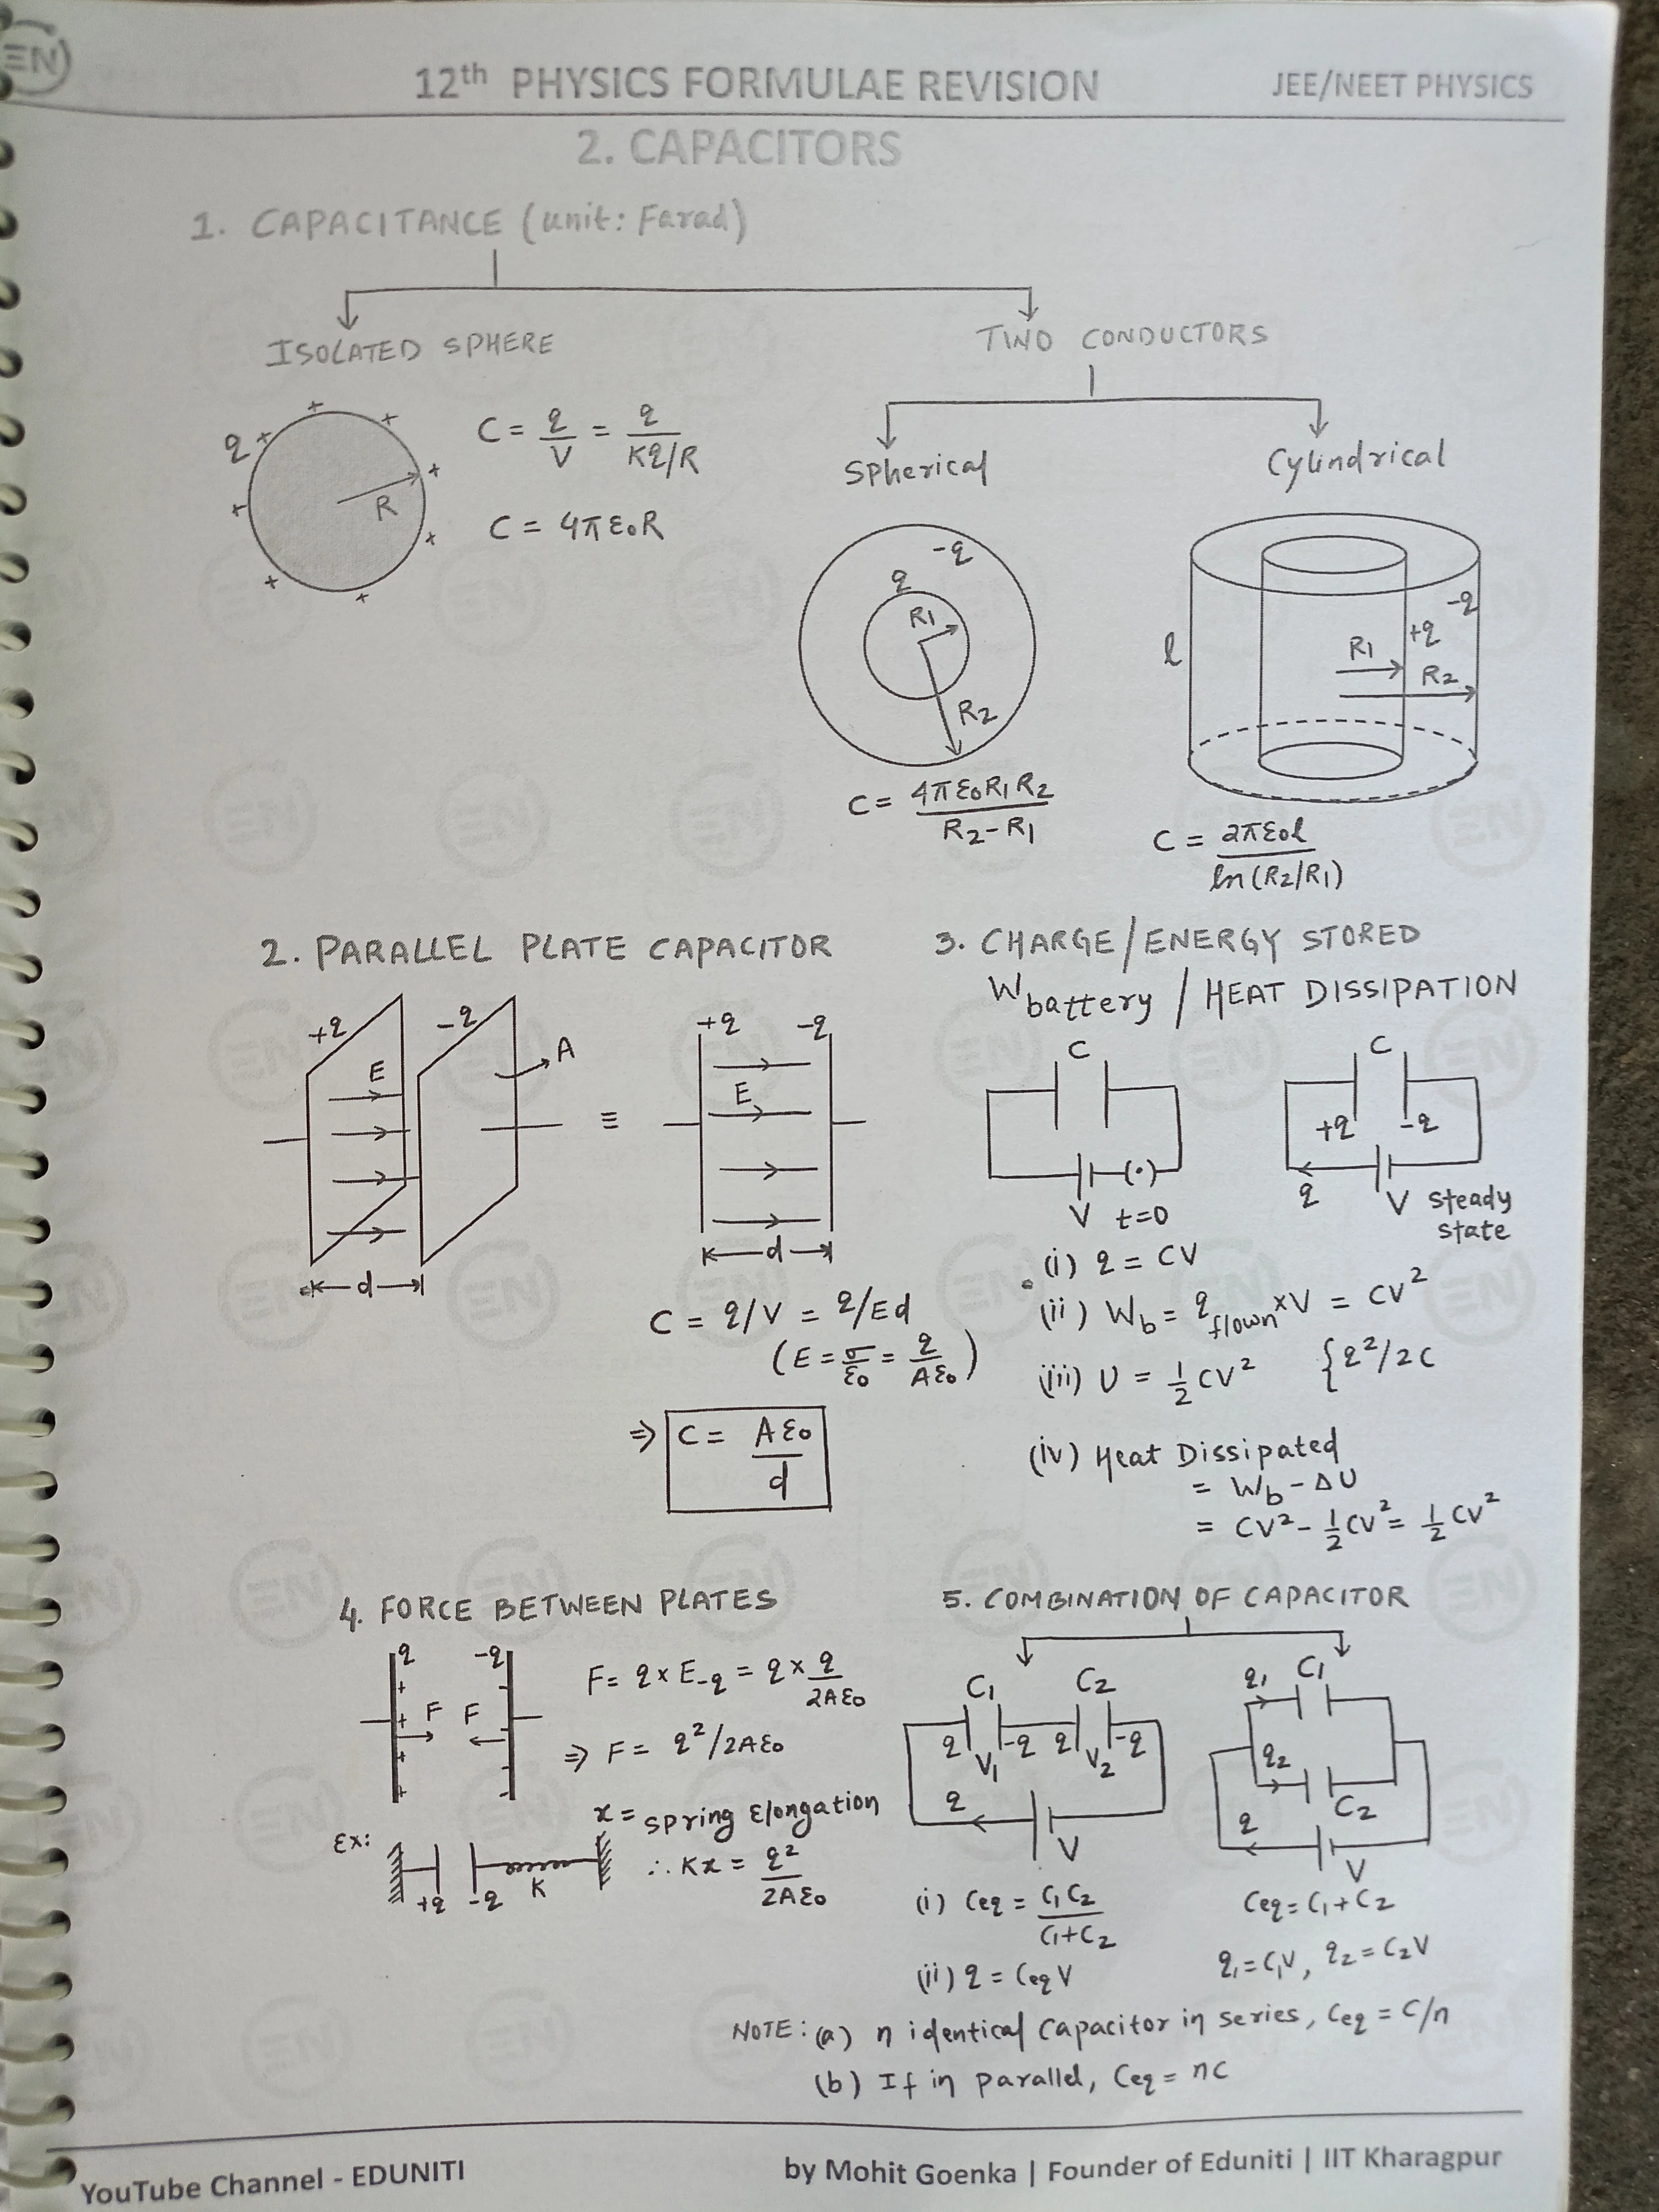 EN
12th PHYSICS FORMULAE REVISION
JEE/NEET PHYSICS
2. CAPACITORS
1. CAPACITANCE (unit: Farad)
ISOLATED SPHERE
TWO CONDUCTORS
q + + + + + + + +
R
C = q/V = q/(Kq/R)
C = 4πε₀R
Spherical
Cylindrical
-q
q
R₁
R₂
C = 4πε₀R₁R₂/(R₂-R₁)
l
R₁
+q
-q
R₂
C = 2πε₀l/ln(R₂/R₁)
2. PARALLEL PLATE CAPACITOR
+q -q
E
A
d
≡
+q -q
E
d
C = q/V = q/Ed
(E = σ/ε₀ = q/Aε₀)
⇒ C = Aε₀/d
3. CHARGE/ENERGY STORED
Wbattery / HEAT DISSIPATION
C
V t=0
C
+q -q
q V steady
state
(i) q = CV
(ii) Wb = qflown×V = CV²
(iii) U = ½CV² {q²/2C
(iv) Heat Dissipated
= Wb - ΔU
= CV² - ½CV² = ½CV²
4. FORCE BETWEEN PLATES
q -q
F F
F = q×E-q = q×q/2Aε₀
⇒ F = q²/2Aε₀
x = spring Elongation
Ex:
+q -q K
∴ Kx = q²/2Aε₀
5. COMBINATION OF CAPACITOR
C₁ C₂
q -q q -q
V₁ V₂
q
V
(i) Ceq = C₁C₂/(C₁+C₂)
(ii) q = CeqV
q₁ C₁
q₂
C₂
q
V
Ceq = C₁+C₂
q₁ = C₁V, q₂ = C₂V
NOTE: (a) n identical Capacitor in series, Ceq = C/n
(b) If in parallel, Ceq = nC
YouTube Channel - EDUNITI
by Mohit Goenka | Founder of Eduniti | IIT Kharagpur